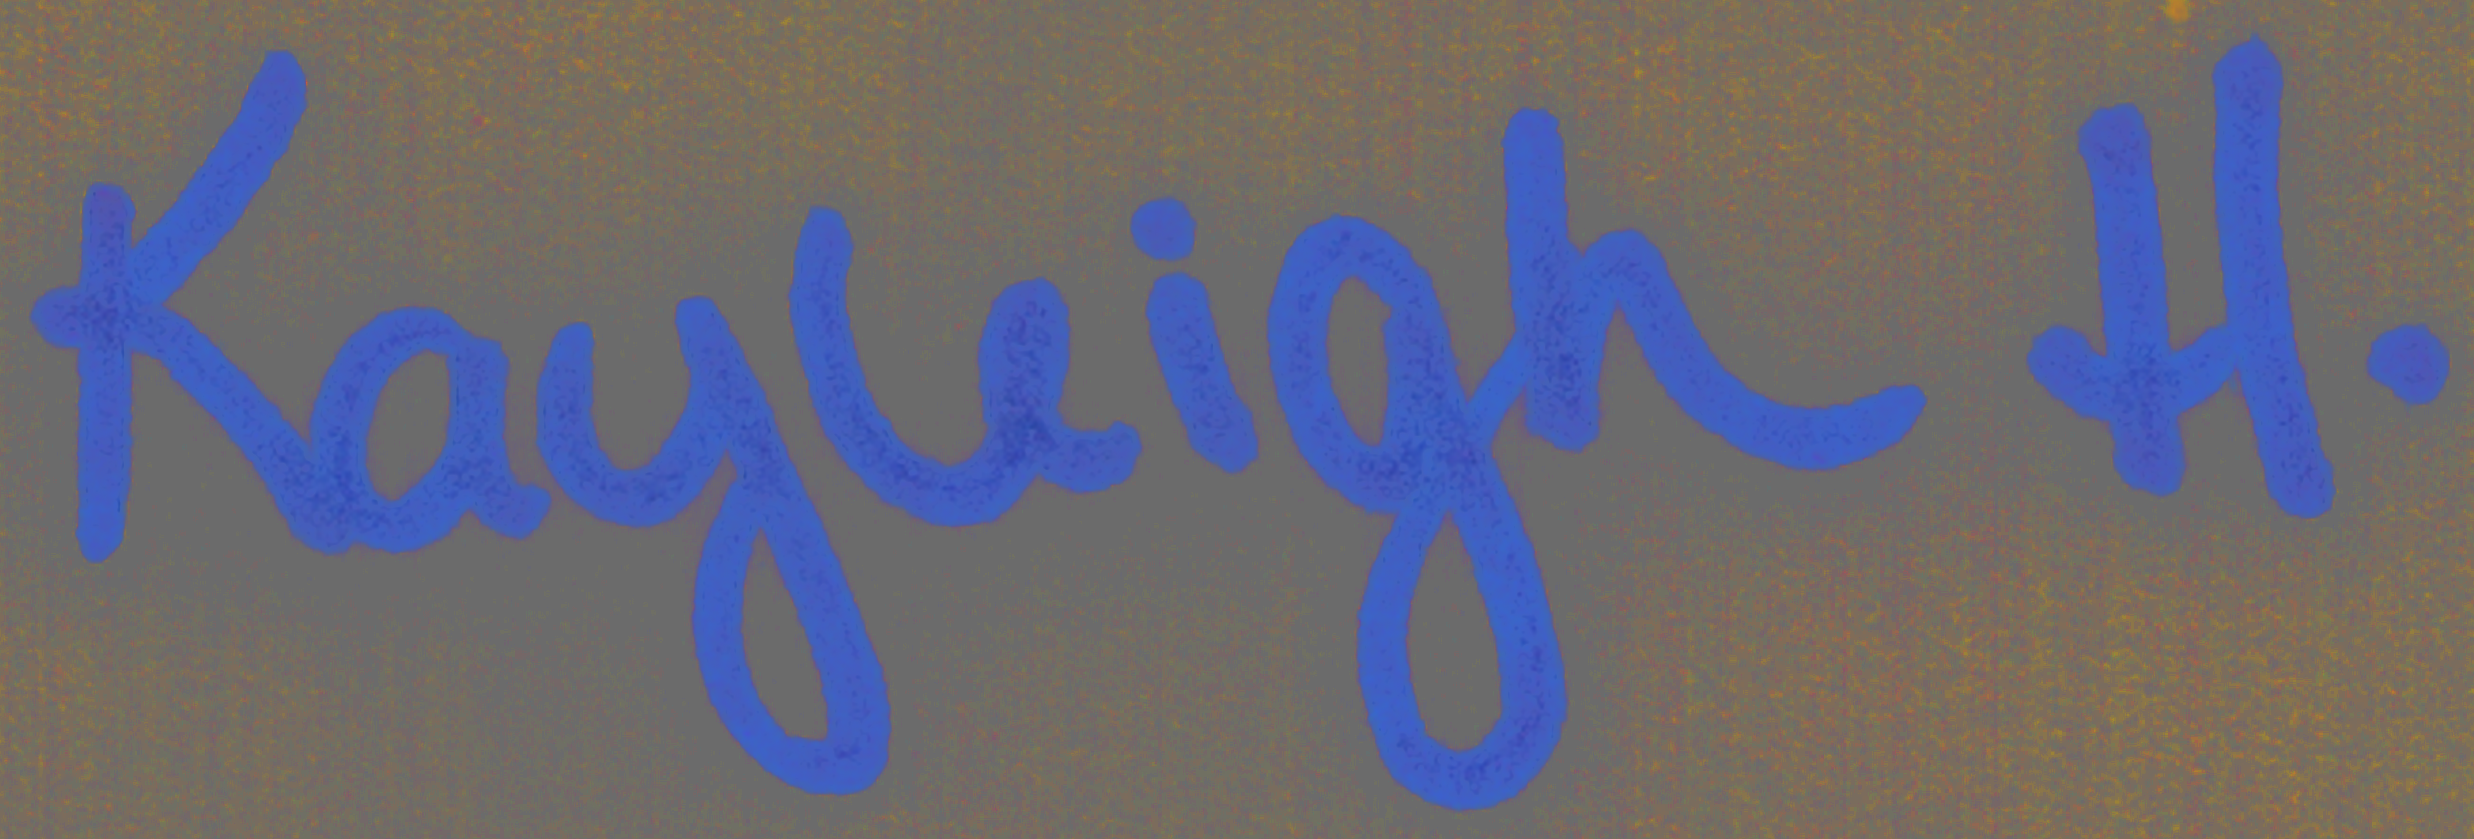 Kayleigh H.